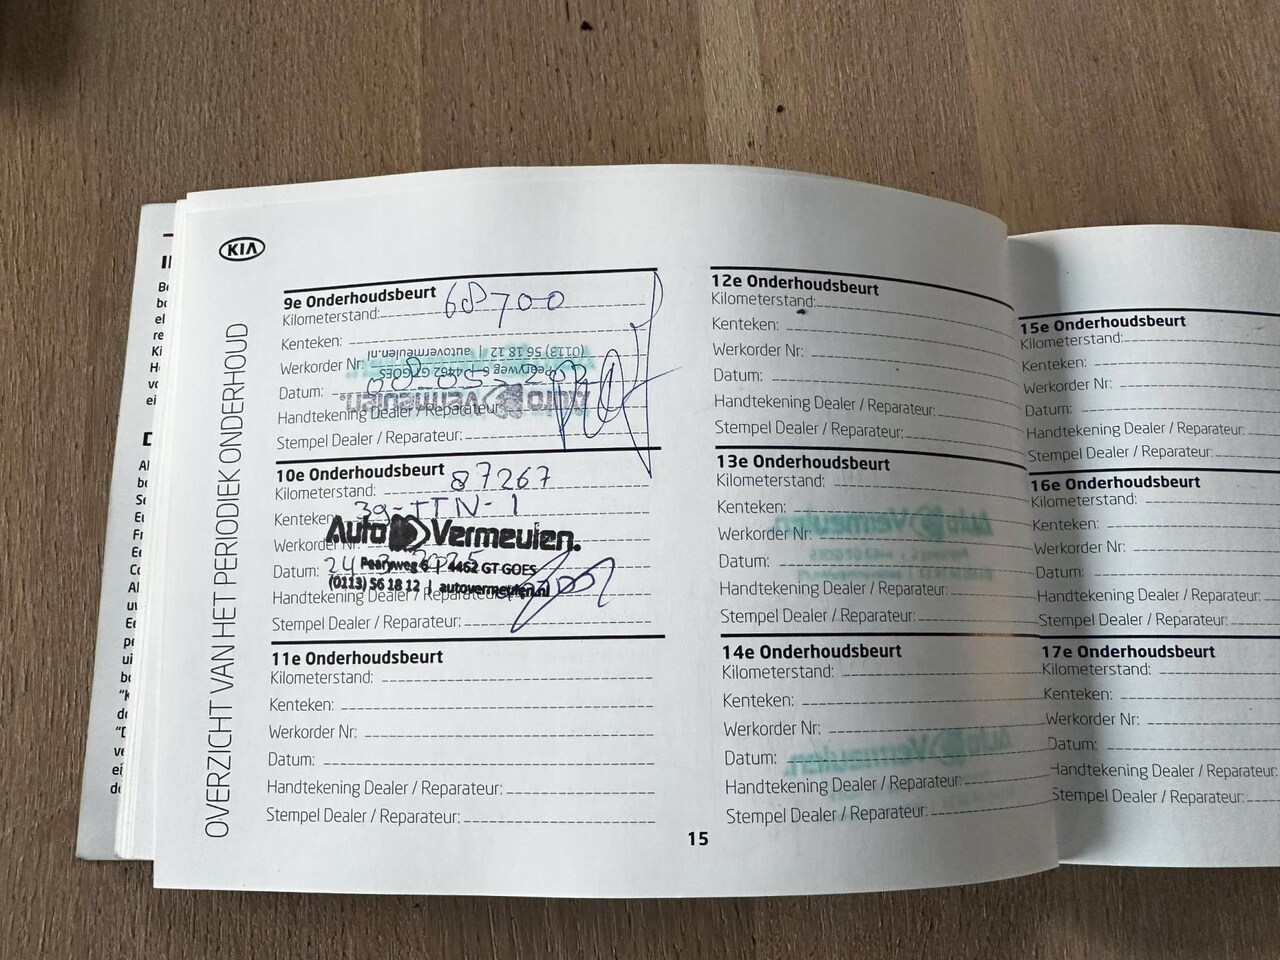 KIA
OVERZICHT VAN HET PERIODIEK ONDERHOUD
9e Onderhoudsbeurt
Kilometerstand: 68700
Kenteken:
Werkorder Nr:
Datum:
Handtekening Dealer / Reparateur:
Stempel Dealer / Reparateur:
Auto Vermeulen.
Pearyweg 6 | 4462 GT GOES
(0113) 56 18 12 | autovermeulen.nl
10e Onderhoudsbeurt
Kilometerstand: 87267
Kenteken: 39-TTN-1
Werkorder Nr:
Auto Vermeulen.
Datum: 24
Pearyweg 6 | 4462 GT GOES
(0113) 56 18 12 | autovermeulen.nl
Handtekening Dealer / Reparateur:
Stempel Dealer / Reparateur:
11e Onderhoudsbeurt
Kilometerstand:
Kenteken:
Werkorder Nr:
Datum:
Handtekening Dealer / Reparateur:
Stempel Dealer / Reparateur:
12e Onderhoudsbeurt
Kilometerstand:
Kenteken:
Werkorder Nr:
Datum:
Handtekening Dealer / Reparateur:
Stempel Dealer / Reparateur:
13e Onderhoudsbeurt
Kilometerstand:
Kenteken:
Werkorder Nr:
Datum:
Handtekening Dealer / Reparateur:
Stempel Dealer / Reparateur:
14e Onderhoudsbeurt
Kilometerstand:
Kenteken:
Werkorder Nr:
Datum:
Handtekening Dealer / Reparateur:
Stempel Dealer / Reparateur:
15
15e Onderhoudsbeurt
Kilometerstand:
Kenteken:
Werkorder Nr:
Datum:
Handtekening Dealer / Reparateur:
Stempel Dealer / Reparateur:
16e Onderhoudsbeurt
Kilometerstand:
Kenteken:
Werkorder Nr:
Datum:
Handtekening Dealer / Reparateur:
Stempel Dealer / Reparateur:
17e Onderhoudsbeurt
Kilometerstand:
Kenteken:
Werkorder Nr:
Datum:
Handtekening Dealer / Reparateur:
Stempel Dealer / Reparateur: